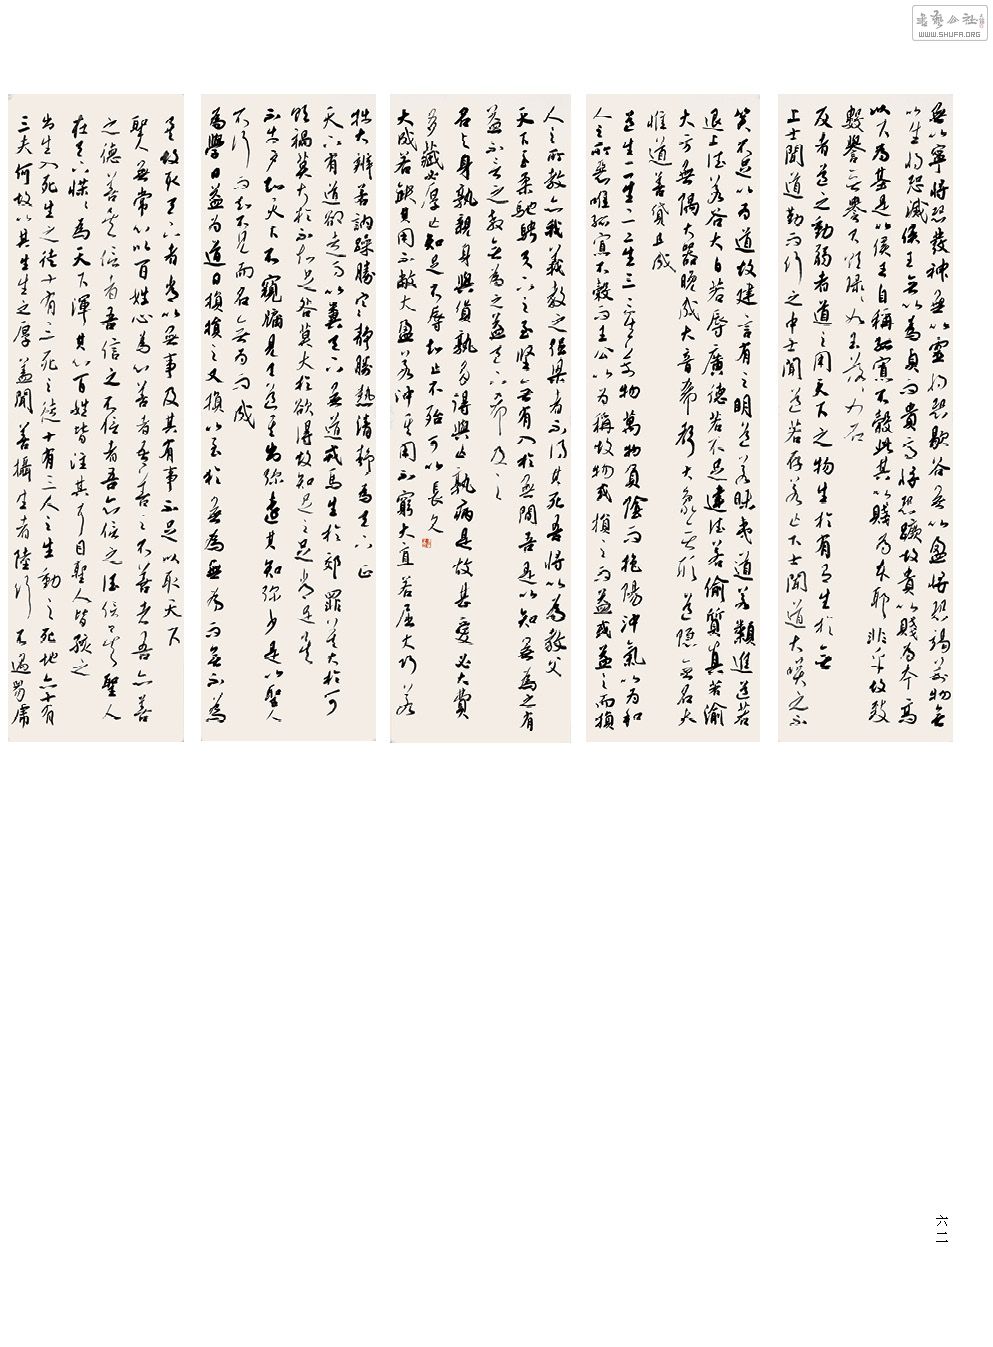 無以寧將恐發神無以靈將恐歇谷無以盈將恐竭萬物無
以生將恐滅侯王無以為貞而貴高將恐蹶故貴以賤為本高
以下為基是以侯王自稱孤寡不穀此其以賤為本耶非乎故致
數譽無譽不欲琭琭如玉落落如石
反者道之動弱者道之用天下之物生於有有生於無
上士聞道勤而行之中士聞道若存若亡下士聞道大笑之不
笑不足以為道故建言有之明道若昧夷道若類進道若
退上德若谷大白若辱廣德若不足建德若偷質真若渝
大方無隅大器晚成大音希聲大象無形道隱無名夫
惟道善貸且成
道生一一生二二生三三生萬物萬物負陰而抱陽沖氣以為和
人之所惡唯孤寡不穀而王公以為稱故物或損之而益或益之而損
人之所教亦我義教之強梁者不得其死吾將以為教父
天下之至柔馳騁天下之至堅無有入於無間吾是以知無為之有
益不言之教無為之益天下希及之
名與身孰親身與貨孰多得與亡孰病是故甚愛必大費
多藏必厚亡知足不辱知止不殆可以長久
大成若缺其用不敝大盈若沖其用不窮大直若屈大巧若
拙大辯若訥躁勝寒靜勝熱清靜為天下正
天下有道卻走馬以糞天下無道戎馬生於郊罪莫大於可
欲禍莫大於不知足咎莫大於欲得故知足之足常足矣
不出戶知天下不窺牖見天道其出彌遠其知彌少是以聖人
不行而知不見而名無為而成
為學日益為道日損損之又損以至於無為無為而無不為
矣故取天下者常以無事及其有事不足以取天下
聖人無常心以百姓心為心善者吾善之不善者吾亦善
之德善矣信者吾信之不信者吾亦信之德信矣聖人
在天下惵惵為天下渾其心百姓皆注其耳目聖人皆孩之
出生入死生之徒十有三死之徒十有三人之生動之死地亦十有
三夫何故以其生生之厚蓋聞善攝生者陸行不遇兕虎
六二
WWW.SHUFA.ORG